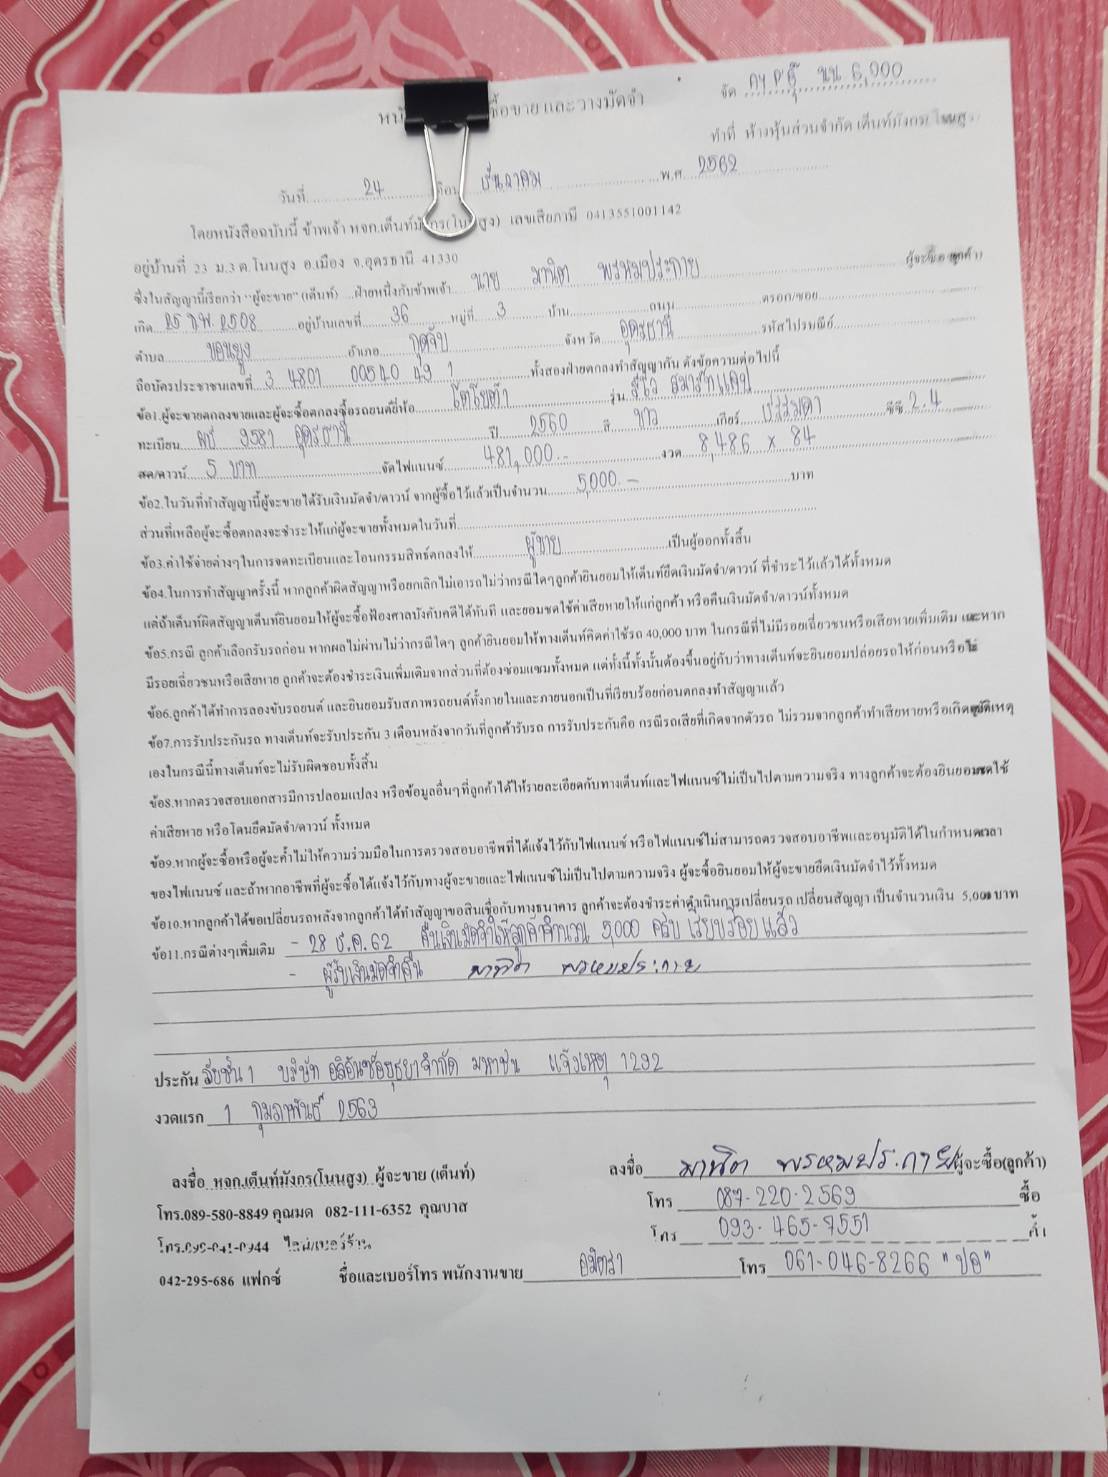 ซื้อขาย และวางมัดจำ
จัด นน 5,000
ทำที่ ห้างหุ้นส่วนจำกัด เต็นท์มังกร โนนสูง
วันที่ 24 ธันวาคม พ.ศ. 2562
โดยหนังสือฉบับนี้ ข้าพเจ้า หจก.เต็นท์มังกร(โนนสูง) เลขเสียภาษี 0413551001142
อยู่บ้านที่ 23 ม.3 ต.โนนสูง อ.เมือง จ.อุดรธานี 41330
ซึ่งในสัญญานี้เรียกว่า "ผู้จะขาย"(เต็นท์) ฝ่ายหนึ่งกับข้าพเจ้า นาย มานิต พรหมประกาย ผู้จะซื้อ(ลูกค้า)
เกิด 25 ก.พ. 2508 อยู่บ้านเลขที่ 36 หมู่ที่ 3 บ้าน ถนน ตรอก/ซอย
ตำบล ขอนยูง อำเภอ กุดจับ จังหวัด อุดรธานี รหัสไปรษณีย์
ถือบัตรประชาชนเลขที่ 3 4801 00540 49 1 ทั้งสองฝ่ายตกลงทำสัญญากัน ดังข้อความต่อไปนี้
ข้อ1.ผู้จะขายตกลงขายและผู้จะซื้อตกลงซื้อรถยนต์ยี่ห้อ โตโยต้า รุ่น รีโว่ สมาร์ทแคป
ทะเบียน ผต 9581 อุดรธานี ปี 2560 สี ขาว เกียร์ ธรรมดา ซีซี 2.4
สด/ดาวน์ 5 บาท จัดไฟแนนซ์ 481,000.- งวด 8,486 x 84
ข้อ2.ในวันที่ทำสัญญานี้ผู้จะขายได้รับเงินมัดจำ/ดาวน์ จากผู้ซื้อไว้แล้วเป็นจำนวน 5,000.- บาท
ส่วนที่เหลือผู้จะซื้อตกลงจะชำระให้แก่ผู้จะขายทั้งหมดในวันที่
ข้อ3.ค่าใช้จ่ายต่างๆในการจดทะเบียนและโอนกรรมสิทธิ์ตกลงให้ ผู้ขาย เป็นผู้ออกทั้งสิ้น
ข้อ4.ในการทำสัญญาครั้งนี้ หากลูกค้าผิดสัญญาหรือยกเลิกไม่เอารถไม่ว่ากรณีใดๆลูกค้ายินยอมให้เต็นท์ยึดเงินมัดจำ/ดาวน์ ที่ชำระไว้แล้วได้ทั้งหมด
แต่ถ้าเต็นท์ผิดสัญญาเต็นท์ยินยอมให้ผู้จะซื้อฟ้องศาลบังคับคดีได้ทันที และยอมชดใช้ค่าเสียหายให้แก่ลูกค้า หรือคืนเงินมัดจำ/ดาวน์ทั้งหมด
ข้อ5.กรณี ลูกค้าเลือกรับรถก่อน หากผลไม่ผ่านไม่ว่ากรณีใดๆ ลูกค้ายินยอมให้ทางเต็นท์คิดค่าใช้รถ 40,000 บาท ในกรณีที่ไม่มีรอยเฉี่ยวชนหรือเสียหายเพิ่มเติม และหาก
มีรอยเฉี่ยวชนหรือเสียหาย ลูกค้าจะต้องชำระเงินเพิ่มเติมจากส่วนที่ต้องซ่อมแซมทั้งหมด แต่ทั้งนี้ทั้งนั้นต้องขึ้นอยู่กับว่าทางเต็นท์จะยินยอมปล่อยรถให้ก่อนหรือไม่
ข้อ6.ลูกค้าได้ทำการลองขับรถยนต์ และยินยอมรับสภาพรถยนต์ทั้งภายในและภายนอกเป็นที่เรียบร้อยก่อนตกลงทำสัญญาแล้ว
ข้อ7.การรับประกันรถ ทางเต็นท์จะรับประกัน 3 เดือนหลังจากวันที่ลูกค้ารับรถ การรับประกันคือ กรณีรถเสียที่เกิดจากตัวรถ ไม่รวมจากลูกค้าทำเสียหายหรือเกิดอุบัติเหตุ
เองในกรณีนี้ทางเต็นท์จะไม่รับผิดชอบทั้งสิ้น
ข้อ8.หากตรวจสอบเอกสารมีการปลอมแปลง หรือข้อมูลอื่นๆที่ลูกค้าได้ให้รายละเอียดกับทางเต็นท์และไฟแนนซ์ไม่เป็นไปตามความจริง ทางลูกค้าจะต้องยินยอมชดใช้
ค่าเสียหาย หรือโดนยึดมัดจำ/ดาวน์ ทั้งหมด
ข้อ9.หากผู้จะซื้อหรือผู้จะค้ำไม่ให้ความร่วมมือในการตรวจสอบอาชีพที่ได้แจ้งไว้กับไฟแนนซ์ หรือไฟแนนซ์ไม่สามารถตรวจสอบอาชีพและอนุมัติได้ในกำหนดเวลา
ของไฟแนนซ์ และถ้าหากอาชีพที่ผู้จะซื้อได้แจ้งไว้กับทางผู้จะขายและไฟแนนซ์ไม่เป็นไปตามความจริง ผู้จะซื้อยินยอมให้ผู้จะขายยึดเงินมัดจำไว้ทั้งหมด
ข้อ10.หากลูกค้าได้ขอเปลี่ยนรถหลังจากลูกค้าได้ทำสัญญาขอสินเชื่อกับทางธนาคาร ลูกค้าจะต้องชำระค่าดำเนินการเปลี่ยนรถ เปลี่ยนสัญญา เป็นจำนวนเงิน 5,000 บาท
ข้อ11.กรณีต่างๆเพิ่มเติม - 28 ธ.ค. 62 คืนเงินมัดจำให้ลูกค้าจำนวน 5,000 ครบ เรียบร้อยแล้ว
- ผู้รับเงินมัดจำคืน มานิต พรหมประกาย
ประกัน รับชั้น 1 บริษัท อลิอันซ์อยุธยาจำกัด มหาชน แจ้งเหตุ 1292
งวดแรก 1 กุมภาพันธ์ 2563
ลงชื่อ หจก.เต็นท์มังกร(โนนสูง) ผู้จะขาย (เต็นท์) ลงชื่อ มานิต พรหมประกาย ผู้จะซื้อ(ลูกค้า)
โทร.089-580-8849 คุณมด 082-111-6352 คุณบาส โทร 087-220-2569 ซื้อ
โทร.099-041-0944 ไลน์/เบอร์ร้าน โทร 093-465-7551 ค้ำ
042-295-686 แฟกซ์ ชื่อและเบอร์โทร พนักงานขาย อมิตรา โทร 061-046-8266 "ปอ"